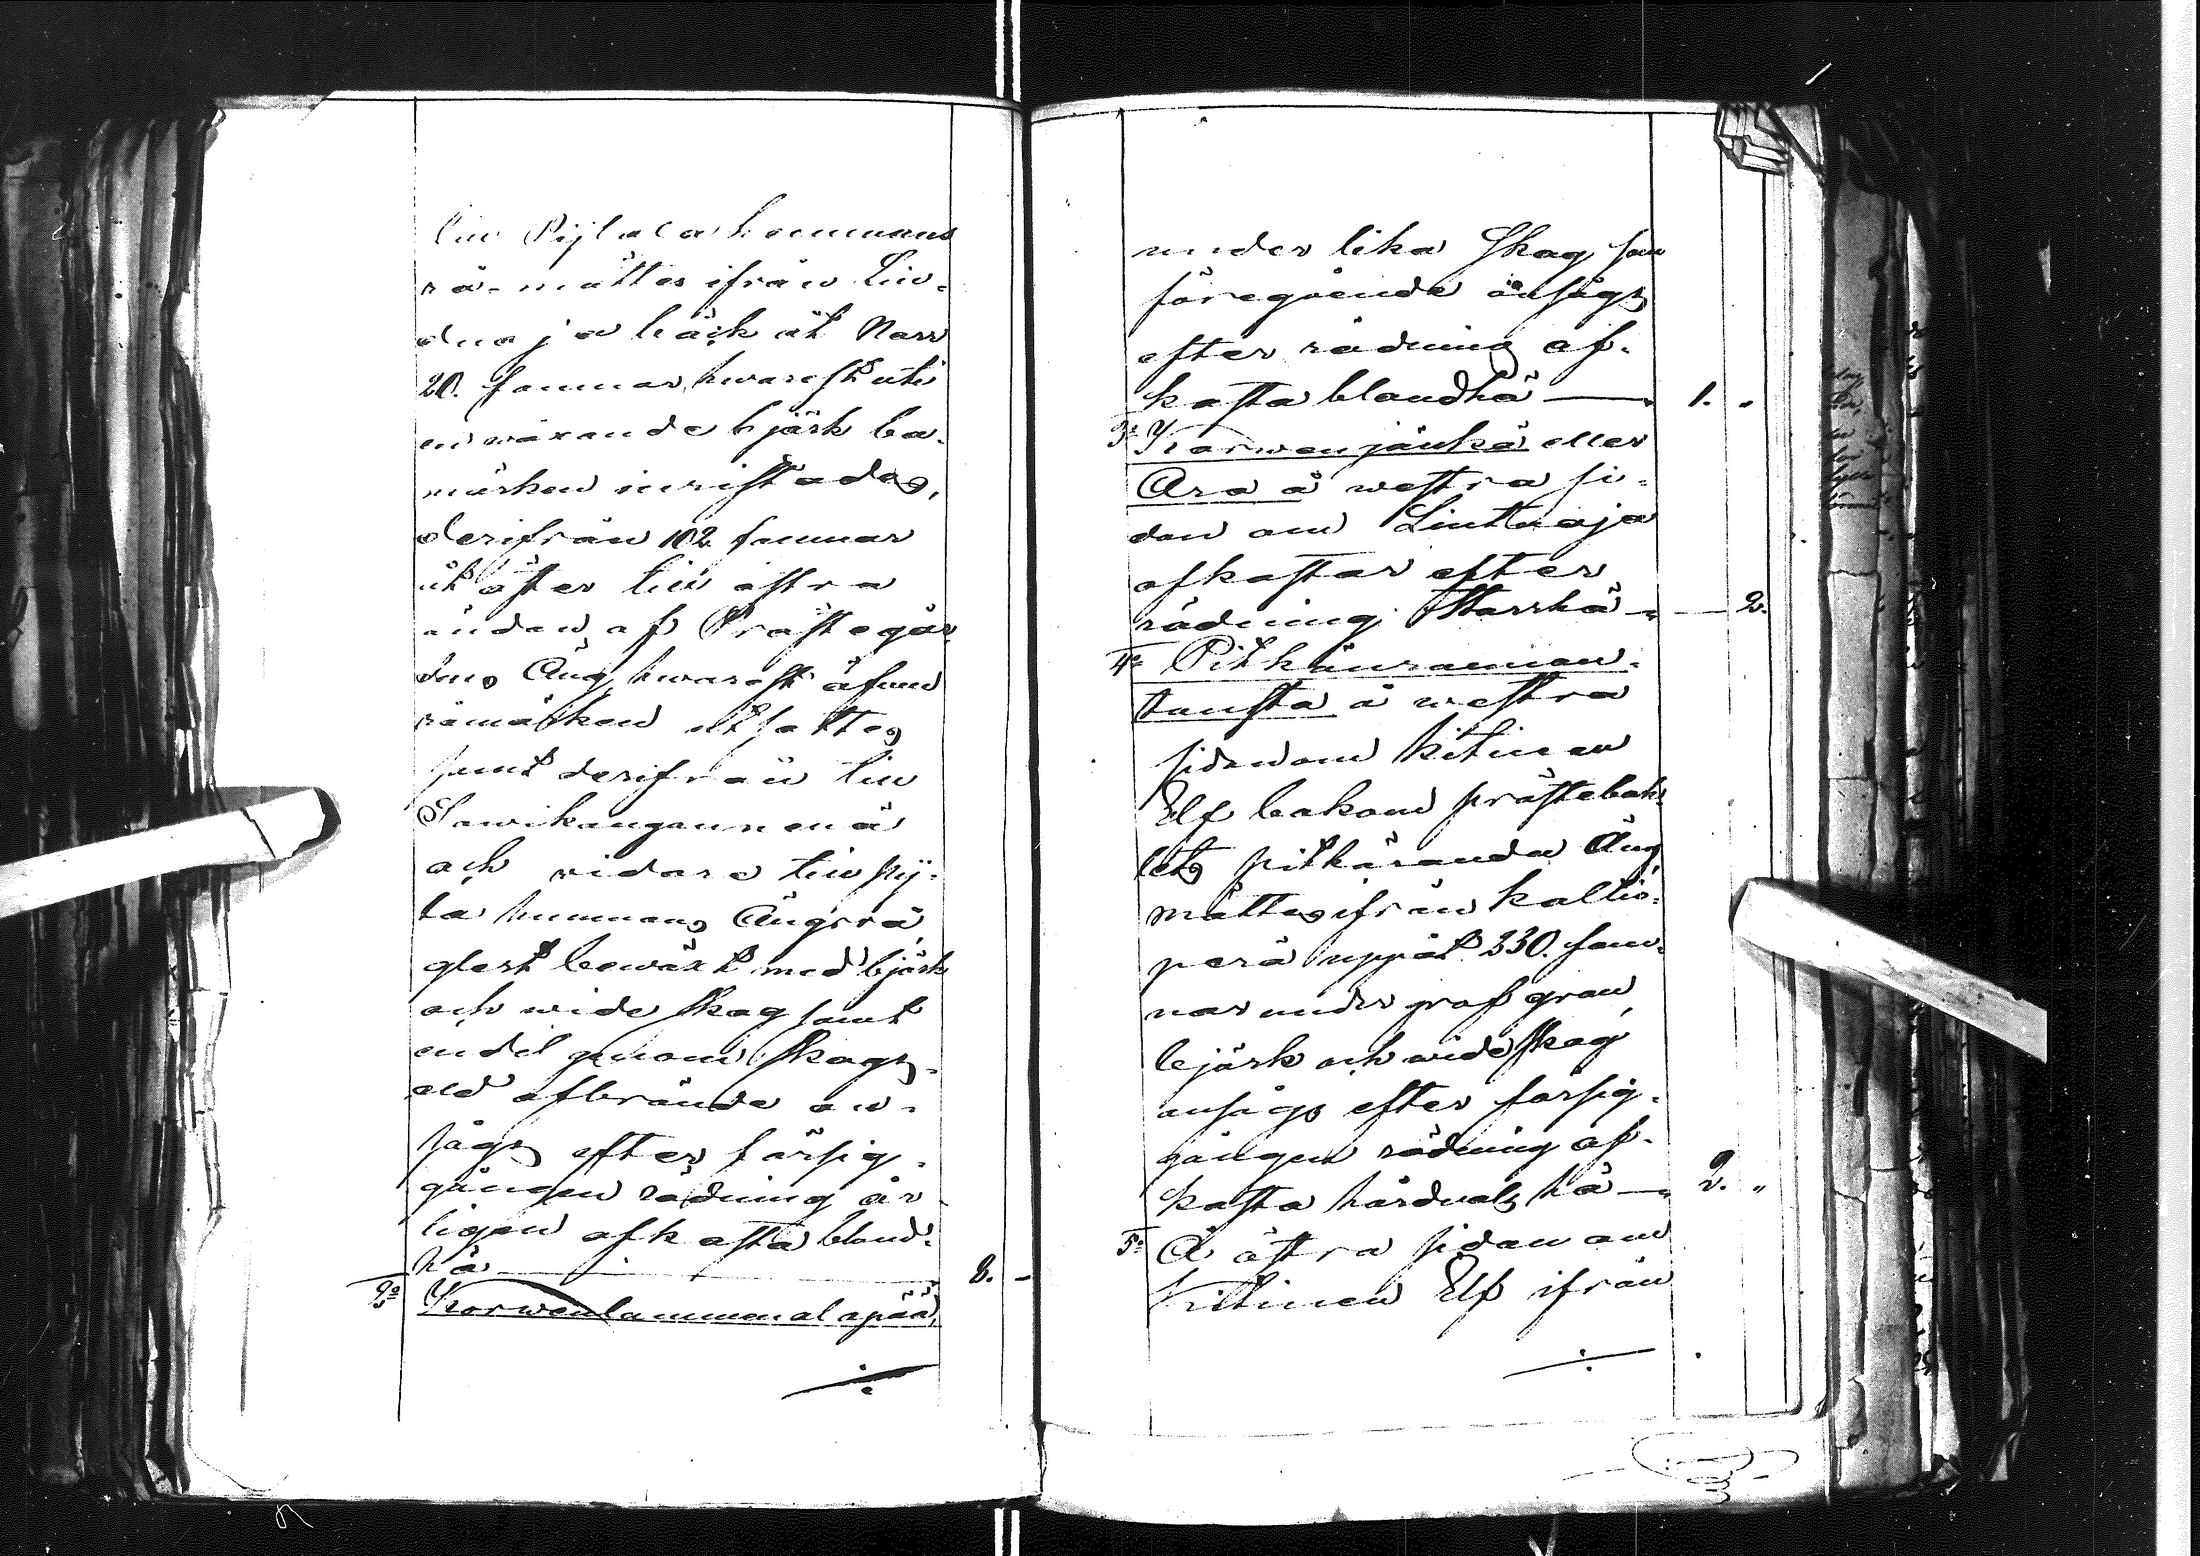 till Pijlala hemmans
rå- mättes ifrån Lin-
duoja bäck åt Norr
20. famnar, hwarest uti
en wäxande björk bo-
märken inristades,
derifrån 102 famnar
åt öster till östra
ändan af Prästegår
dens Äng, hwarest äfwen
råmärken utsattes
samt derifrån till
Sawikangannenä
och vidare till Pij-
la hemmans Ängsrå,
glest bewäxt med björk
och wide skog samt
en del genom skogs-
eld afbrände an-
sågs efter försig-
gången rödning år-
ligen afkasta bland-
hö 8. -
2:o Korwenlammenalapää,
under lika Skog som
föregående ansågs
efter rödning af-
kasta blandhö 1. "
3:o Korwenjänkä eller
Ara å westra si-
dan om Lintuoja
afkastar efter
rödning Starrhö 2.
4:o Pitkänrannan-
tausta å westra
sidan om Kitinen
Elf bakom prästebol-
lets pitkäranda Äng,
mättes ifrån Kaltio-
perä uppåt 230. fam-
nar under graf gran,
björk och wide skog
ansågs efter försig-
gången rödning af-
kasta hårdvals hö 2. "
5:o Å östra sidan om
Kittinen Elf ifrån